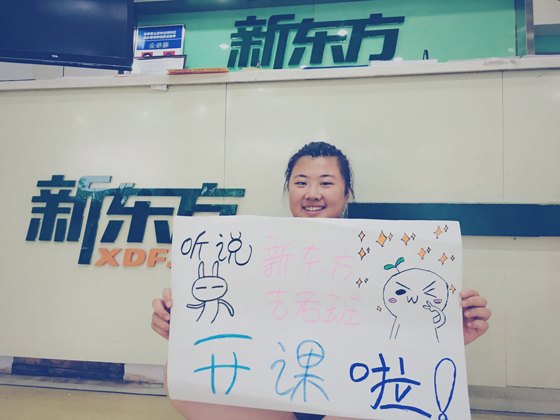 新东方
新东方
XDF.
听说 新东方
艺考班
开课啦！